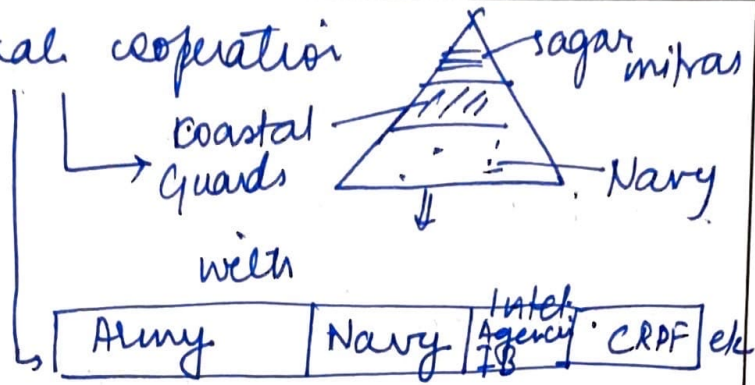 cal cooperation
sagar mitras
coastal Guards
Navy
with
Army
Navy
Intel. Agency IB
CRPF
etc